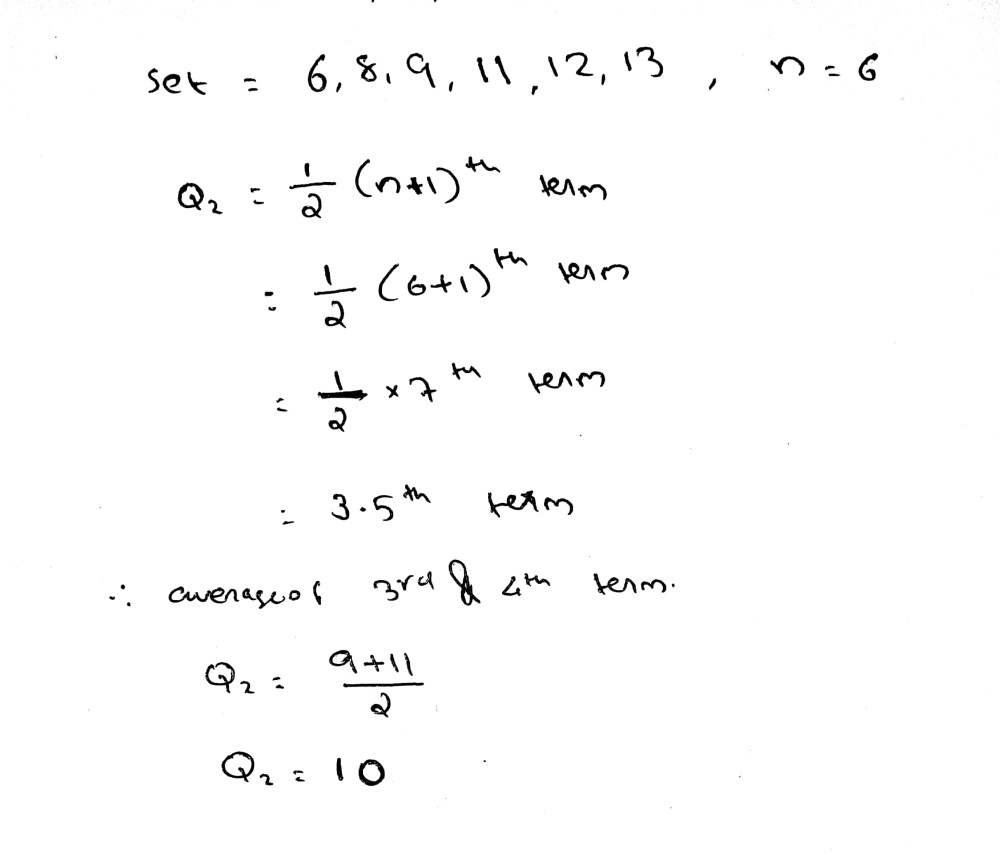 set = 6, 8, 9, 11, 12, 13 , n = 6
Q₂ = 1/2 (n+1)ᵗʰ term
= 1/2 (6+1)ᵗʰ term
= 1/2 × 7ᵗʰ term
= 3.5ᵗʰ term
∴ average of 3rd & 4th term.
Q₂ = (9+11)/2
Q₂ = 10